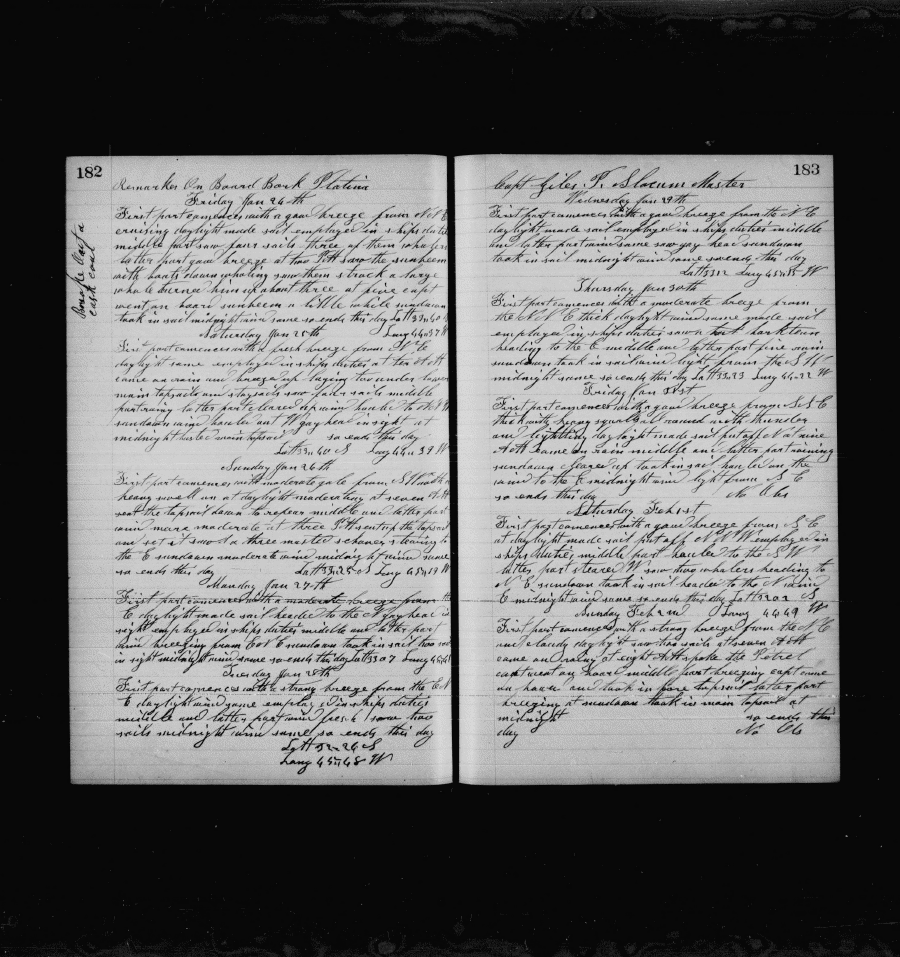 182
Remarks On Board Bark Platina
Friday Jan 24th
First part comences with a gow breeze from N N E
cruising daylight made sail employed in ships duties
middle part saw four sails three of them whalers
latter part gow breeze at two P M saw the sunbeem
with boats down whaling saw them struck a large
whale burned him up about three at five capt
went on board sunbeem a little while sundown
took in sail midnight wind same so ends this day Latt
Saturday Jan 25th Long 44 37 W
First part comences with a fresh breeze from
daylight same employed in ships duties at ten A M
came on rain and breeze up laying too under lower
main topsails and staysails saw four sails middle
part rainy latter part cleared up wind hauled to
sundown wind hauled out W gay head in sight at
midnight so ends this day
Latt 33 40 S Long 44 39 W
Sunday Jan 26th
First part comences with moderate gale from
heavy swell on at daylight moderating at seven A M
sent the topsail down to repair middle and latter part
wind more moderate at three P M sent up the topsail
and set it saw a three masted schoner steering to
the E sundown moderate wind midnight wind same
so ends this day Latt 33 25 S Long 45 19 W
Monday Jan 27th
First part comences with a moderate breeze from the
E daylight made sail headed to the N gay head in
sight employed in ships duties middle and latter part
wind breezing from E N E sundown took in sail two sails
in sight midnight wind same so ends this day Latt 33 07 Long
Tuesday Jan 28th
First part comences with a strong breeze from the E N
E daylight wind same employed in ships duties
middle and latter part wind fresh saw two
sails midnight wind same so ends this day
Latt 32 26 S
Long 45 48 W
cask coal
183
Capt Giles P. Slocum Master
Wednesday Jan 29th
First part comences with a gow breeze from the N E
daylight made sail employed in ships duties middle
and latter part wind same saw gay head sundown
took in sail midnight wind same so ends this day
Latt 33 12 Long 45 35 W
Thursday Jan 30th
First part comences with a moderate breeze from
the N N E thick daylight wind same made sail
employed in ships duties saw a bark
heading to the E middle and latter part fine rain
sundown took in sail wind light from the S W
midnight same so ends this day Latt 33 23 Long 44 22 W
Friday Jan 31st
First part comences with a gow breeze from S S E
thick with heavy squall all round with thunder
and lightling daylight made sail put off N at nine
A M came on rain middle and latter part raining
sundown cleared up took in sail hauled on the
wind to the E midnight wind light from S E
so ends this day No Obs
Saturday Feb 1st
First part comences with a gow breeze from S E
at daylight made sail put off N N W employed in
ships duties middle part hauled to the S W
latter part steared W saw two whalers heading to
N E sundown took in sail headed to the N wind
E midnight wind same so ends this day Latt 32 02 S
Sunday Feb 2nd Long 44 49 W
First part comences with a strong breeze from the N E
and cloudy daylight saw two sails at seven A M
came on rainy at eight A M spoke the Petrel
capt went on board middle part breezing capt came
on board and took in fore topsail latter part
breezing at sundown took in main topsail at
midnight so ends this
day No Obs